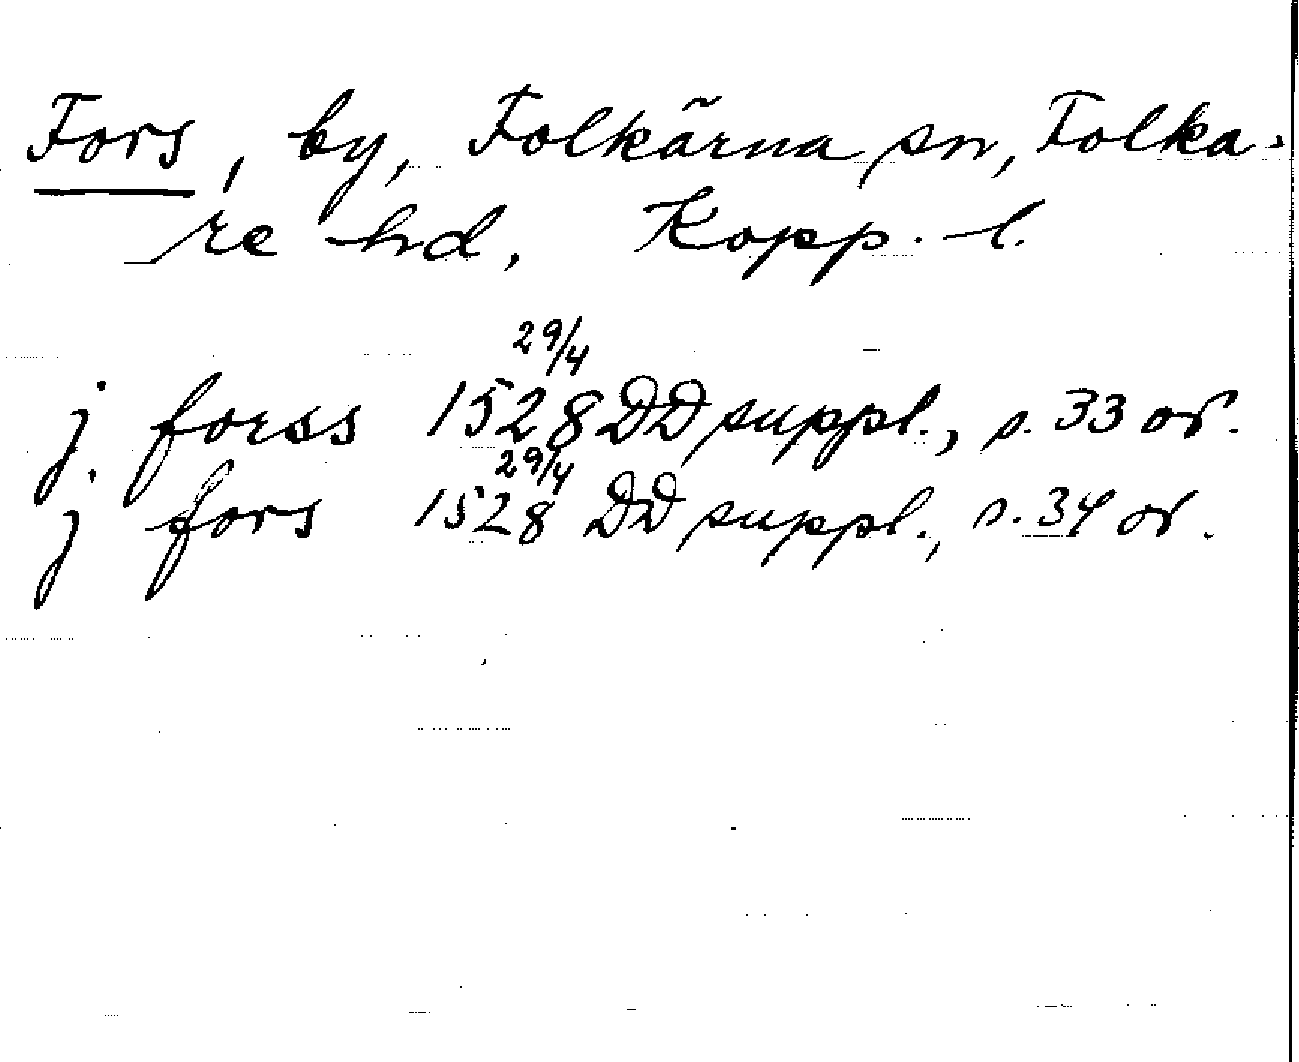 Fors, by, Folkärna sn, Folka-
re hd, Kopp. l.
29/4
j forss 1528 DD suppl., s. 33 or.
29/4
j fors 1528 DD suppl., s. 34 or.